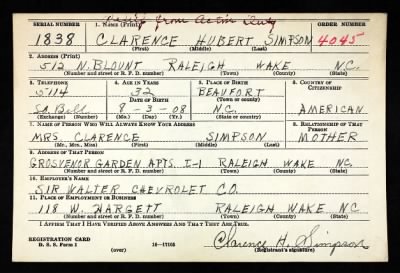 from Active Duty
SERIAL NUMBER 1. NAME (Print) ORDER NUMBER
1838 CLARENCE HUBERT SIMPSON 4045
(First) (Middle) (Last)
2. ADDRESS (Print)
512 N. BLOUNT RALEIGH WAKE N.C.
(Number and street or R. F. D. number) (Town) (County) (State)
3. TELEPHONE 4. AGE IN YEARS 5. PLACE OF BIRTH 6. COUNTRY OF CITIZENSHIP
5114 32 BEAUFORT
DATE OF BIRTH (Town or county)
SO. BELL 8-3-08 N.C. AMERICAN
(Exchange) (Number) (Mo.) (Day) (Yr.) (State or country)
7. NAME OF PERSON WHO WILL ALWAYS KNOW YOUR ADDRESS 8. RELATIONSHIP OF THAT PERSON
MRS CLARENCE SIMPSON MOTHER
(Mr., Mrs., Miss) (First) (Middle) (Last)
9. ADDRESS OF THAT PERSON
GROSVENOR GARDEN APTS. I-1 RALEIGH WAKE NC.
(Number and street or R. F. D. number) (Town) (County) (State)
10. EMPLOYER'S NAME
SIR WALTER CHEVROLET CO.
11. PLACE OF EMPLOYMENT OR BUSINESS
118 W. HARGETT RALEIGH WAKE NC
(Number and street or R. F. D. number) (Town) (County) (State)
I AFFIRM THAT I HAVE VERIFIED ABOVE ANSWERS AND THAT THEY ARE TRUE.
REGISTRATION CARD
D. S. S. Form 1 (over) 16-17105 Clarence H. Simpson
(Registrant's signature)